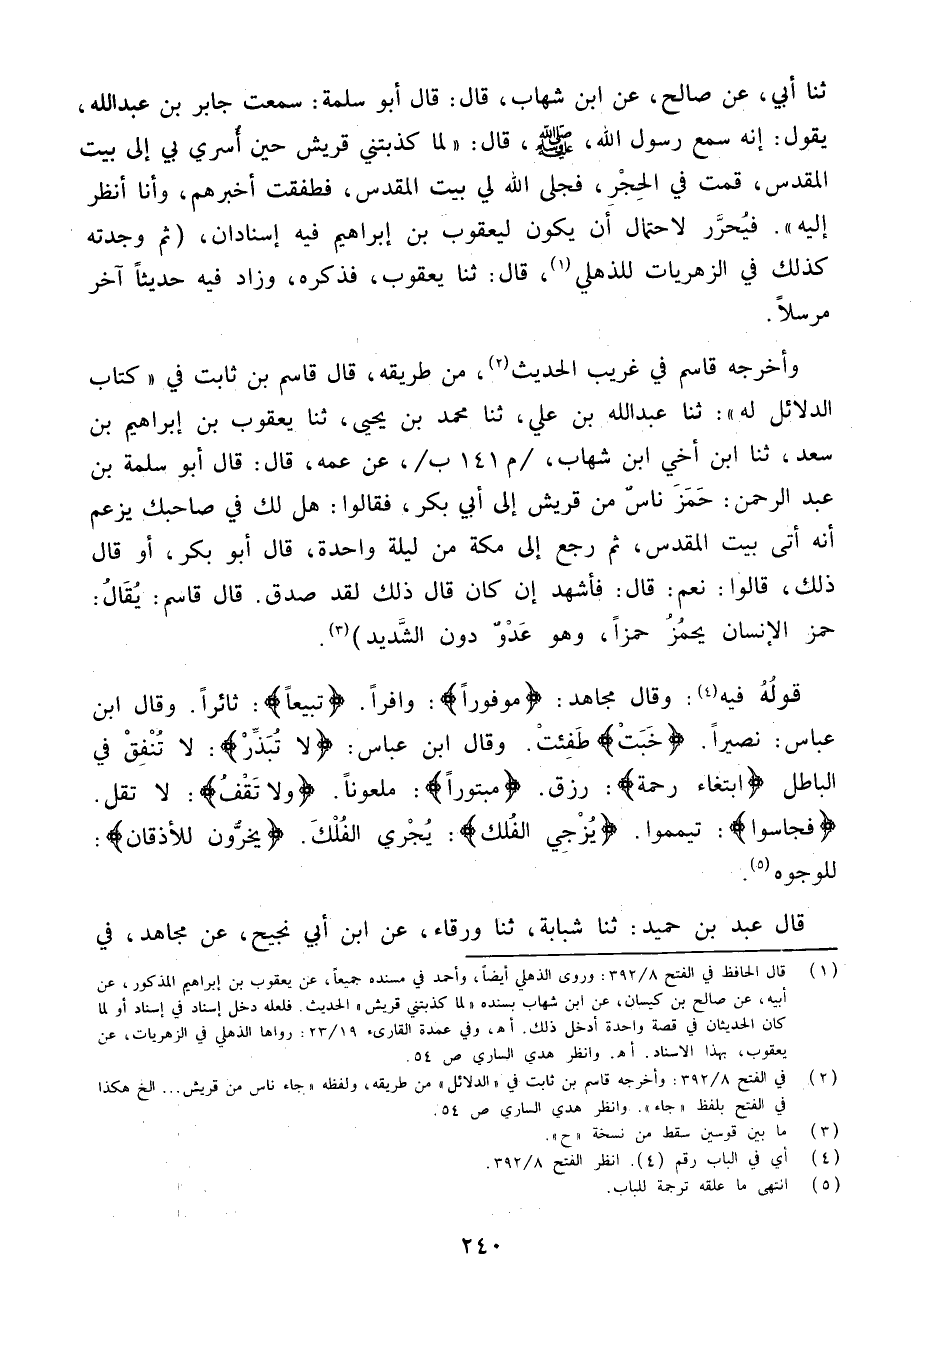 ثنا أبي، عن صالح، عن ابن شهاب، قال: قال أبو سلمة: سمعت جابر بن عبدالله،
يقول: إنه سمع رسول الله، ﷺ، قال: «لما كذبتني قريش حين أُسري بي إلى بيت
المقدس، قمت في الحِجْرِ، فجلى الله لي بيت المقدس، فطفقت أخبرهم، وأنا أنظر
إليه». فيُحرَّر لاحتمال أن يكون ليعقوب بن إبراهيم فيه إسنادان، (ثم وجدته
كذلك في الزهريات للذهلي(١)، قال: ثنا يعقوب، فذكره، وزاد فيه حديثاً آخر
مرسلاً.
وأخرجه قاسم في غريب الحديث(٢)، من طريقه، قال قاسم بن ثابت في «كتاب
الدلائل له»: ثنا عبدالله بن علي، ثنا محمد بن يحيى، ثنا يعقوب بن إبراهيم بن
سعد، ثنا ابن أخي ابن شهاب، /م ١٤١ ب/، عن عمه، قال: قال أبو سلمة بن
عبد الرحمن: حَمَزَ ناسٌ من قريش إلى أبي بكر، فقالوا: هل لك في صاحبك يزعم
أنه أتى بيت المقدس، ثم رجع إلى مكة من ليلة واحدة، قال أبو بكر، أو قال
ذلك، قالوا: نعم: قال: فأشهد إن كان قال ذلك لقد صدق. قال قاسم: يُقَالُ:
حمز الإنسان يحمُزُ حمزاً، وهو عَدْوٌ دون الشَّديد)(٣).
قولُهُ فيه(٤): وقال مجاهد: ﴿موفوراً﴾: وافراً. ﴿تبيعاً﴾: ثائراً. وقال ابن
عباس: نصيراً. ﴿خَبَتْ﴾ طَفِئتْ. وقال ابن عباس: ﴿لا تُبَذِّرْ﴾: لا تُنْفِقْ في
الباطل ﴿ابتغاء رحمة﴾: رزق. ﴿مبتوراً﴾: ملعوناً. ﴿ولا تَقْفُ﴾: لا تقل.
﴿فجاسوا﴾: تيمموا. ﴿يُزْجي الفُلك﴾: يُجْري الفُلْكَ. ﴿يخرُّون للأذقان﴾:
للوجوه(٥).
قال عبد بن حميد: ثنا شبابة، ثنا ورقاء، عن ابن أبي نجيح، عن مجاهد، في
(١) قال الحافظ في الفتح ٣٩٢/٨: وروى الذهلي أيضاً، وأحمد في مسنده جميعاً، عن يعقوب بن إبراهيم المذكور، عن
أبيه، عن صالح بن كيسان، عن ابن شهاب بسنده «لما كذبتني قريش» الحديث. فلعله دخل إسناد في إسناد أو لما
كان الحديثان في قصة واحدة أدخل ذلك. أهـ، وفي عمدة القارىء ٢٣/١٩: رواها الذهلي في الزهريات، عن
يعقوب، بهذا الاسناد. أهـ. وانظر هدي الساري ص ٥٤.
(٢) في الفتح ٣٩٢/٨: وأخرجه قاسم بن ثابت في «الدلائل» من طريقه، ولفظه «جاء ناس من قريش... الخ هكذا
في الفتح بلفظ «جاء». وانظر هدي الساري ص ٥٤.
(٣) ما بين قوسين سقط من نسخة «ح».
(٤) أي في الباب رقم (٤). انظر الفتح ٣٩٢/٨.
(٥) انتهى ما علقه ترجمة للباب.
٢٤٠